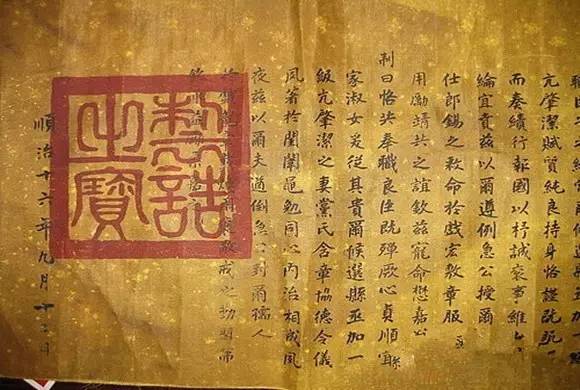 亢肇潔賦質純良持身恪謹既
而奏績行報國以抒誠褒事維
綸宜賁茲以爾遵例急公授爾
仕郎錫之敕命於戲宏敷章服
用勵靖共之誼欽茲寵命懋嘉公
制曰恪共奉職良臣既殫厥心貞順宜
家淑女爰從其貴爾候選縣丞加一
級亢肇潔之妻黨氏含章協德令儀
夙著於閨闈黽勉同心內治相成夙
夜茲以爾夫遵例急公封爾孺人
敬戒之勖
順治十六年九月十二日
制誥之寶